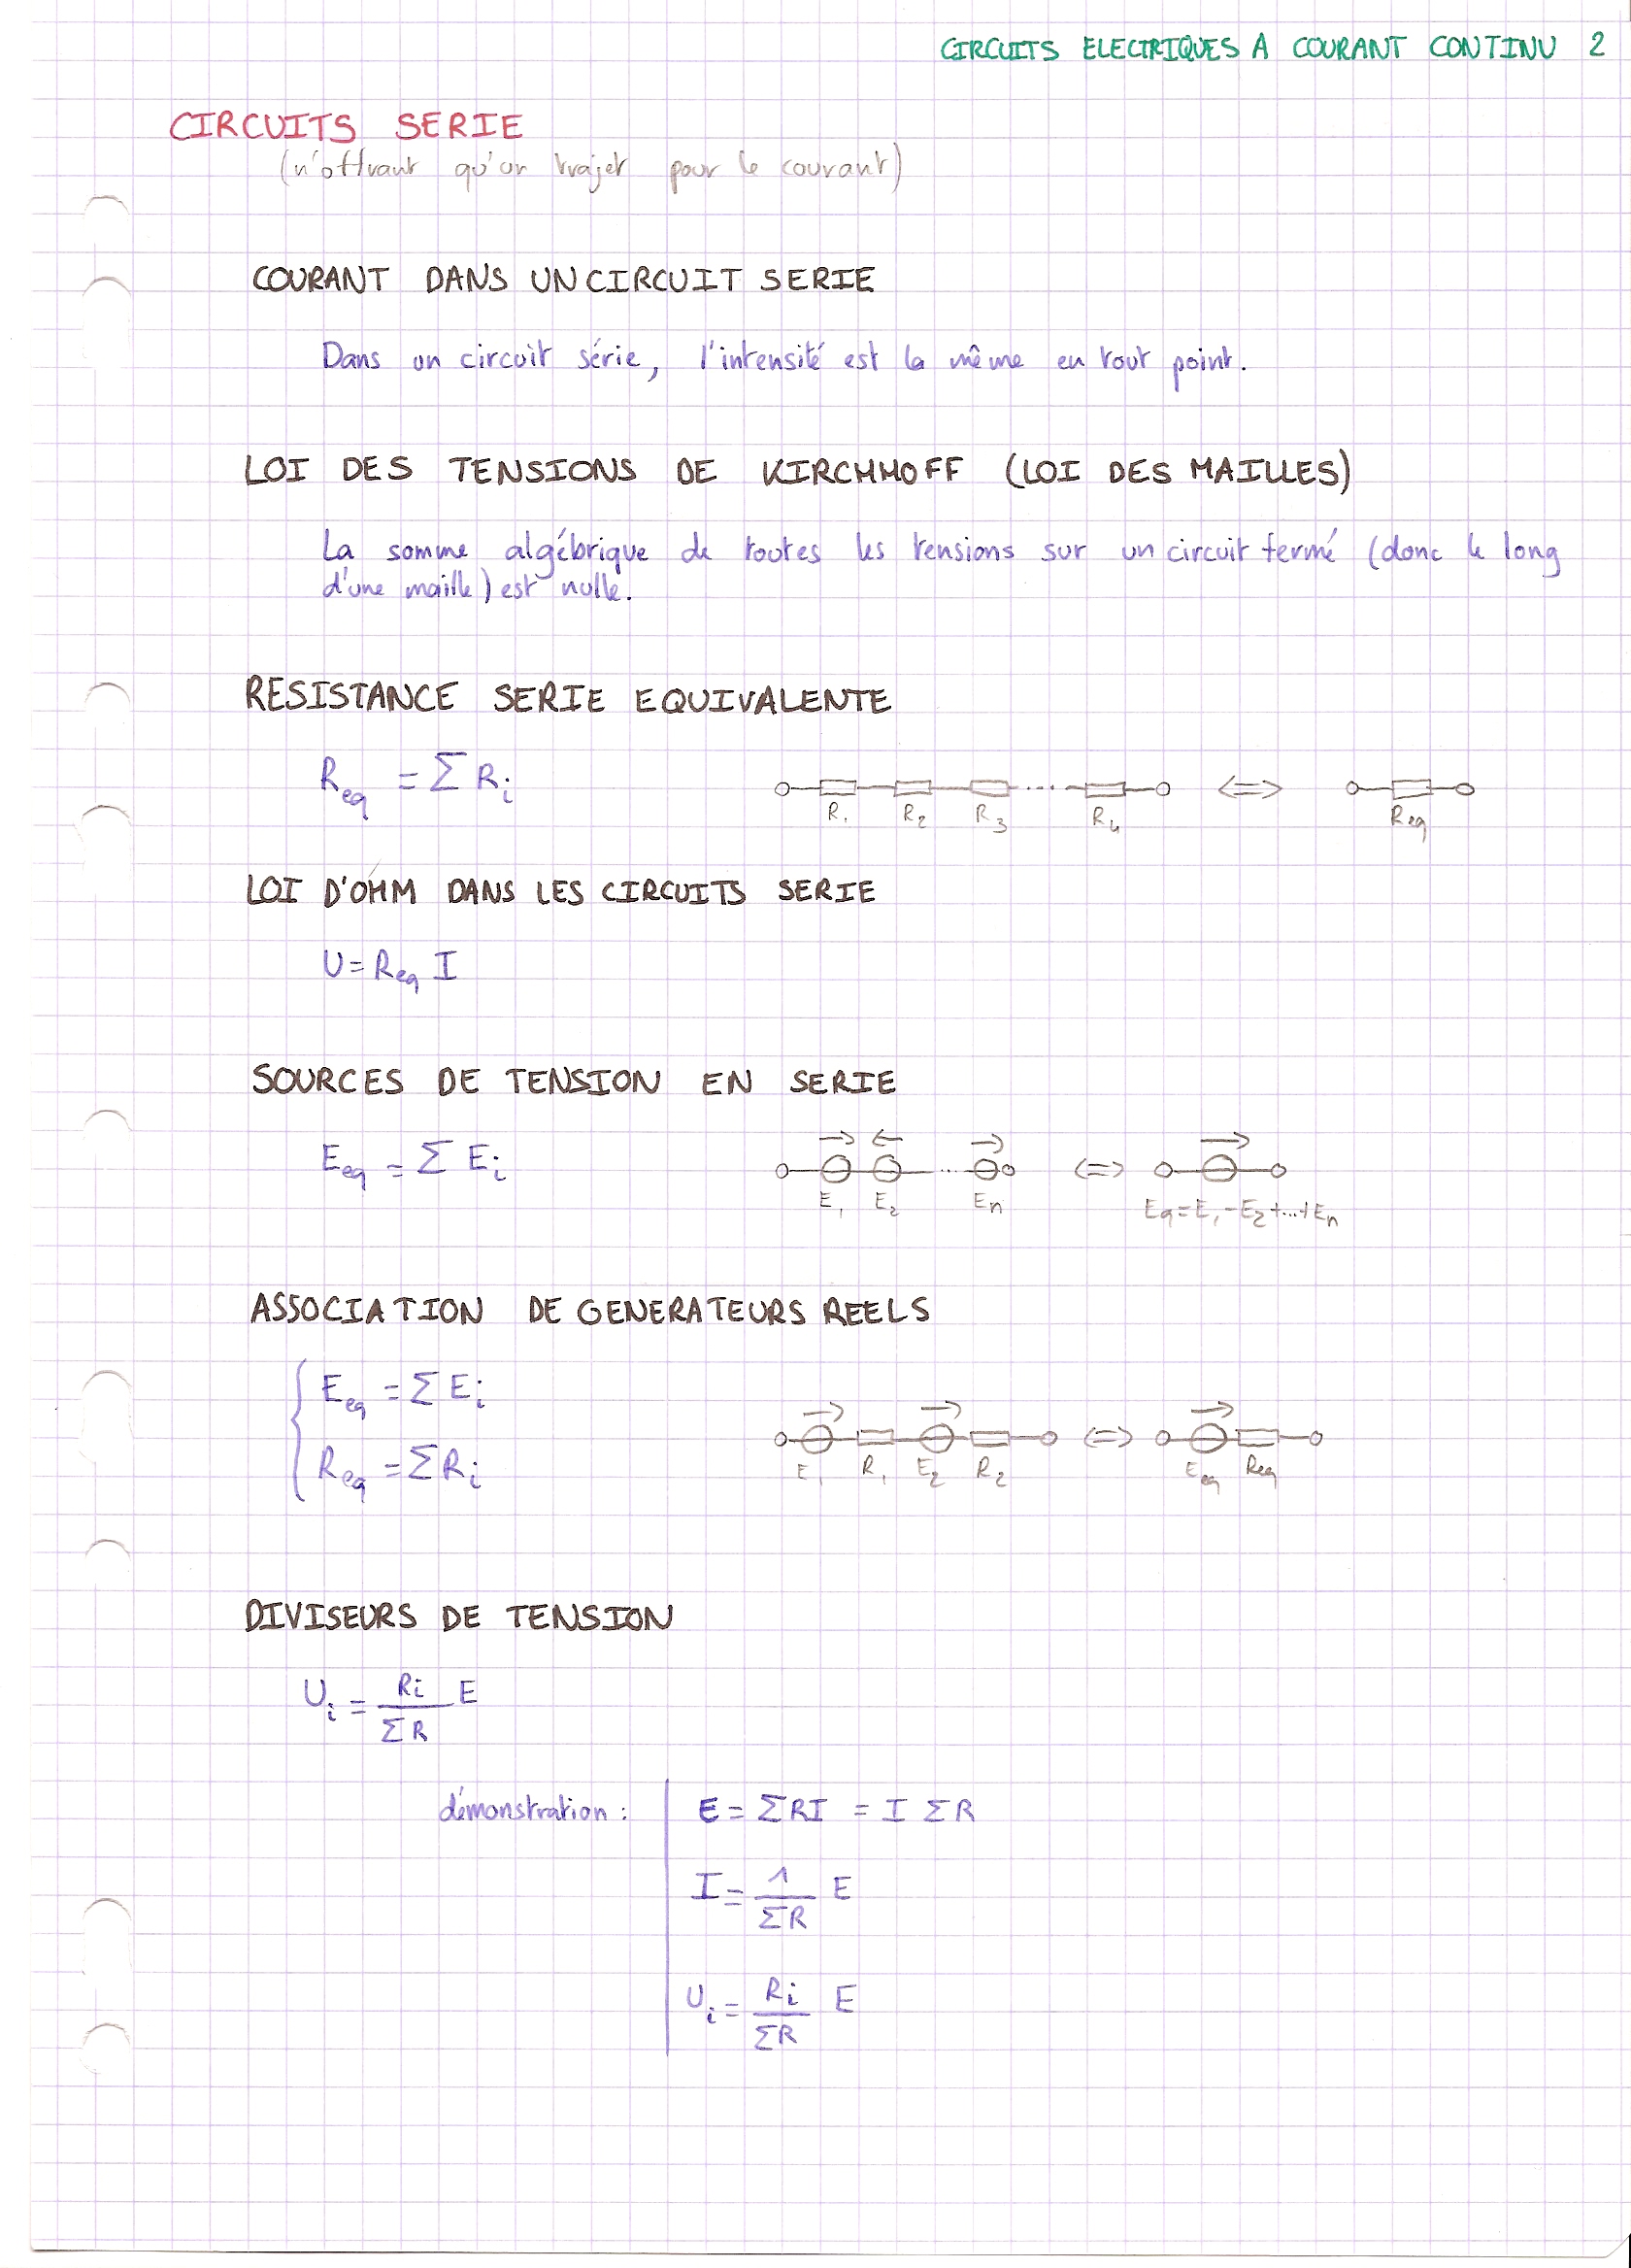 CIRCUITS ELECTRIQUES A COURANT CONTINU 2
CIRCUITS SERIE
(n'offrant qu'un trajet pour le courant)
COURANT DANS UN CIRCUIT SERIE
Dans un circuit série, l'intensité est la même en tout point.
LOI DES TENSIONS DE KIRCHHOFF (LOI DES MAILLES)
La somme algébrique de toutes les tensions sur un circuit fermé (donc le long
d'une maille) est nulle.
RESISTANCE SERIE EQUIVALENTE
R_eq = Σ R_i
... ⇔
R_1 R_2 R_3 R_4 R_eq
LOI D'OHM DANS LES CIRCUITS SERIE
U = R_eq I
SOURCES DE TENSION EN SERIE
E_eq = Σ E_i
... ⇔
E_1 E_2 E_n Eq = E_1 - E_2 + ... + E_n
ASSOCIATION DE GENERATEURS REELS
E_eq = Σ E_i
R_eq = Σ R_i
⇔
E_1 R_1 E_2 R_2 E_eq R_eq
DIVISEURS DE TENSION
U_i = R_i / ΣR E
démonstration : E = ΣRI = I ΣR
I = 1 / ΣR E
U_i = R_i / ΣR E